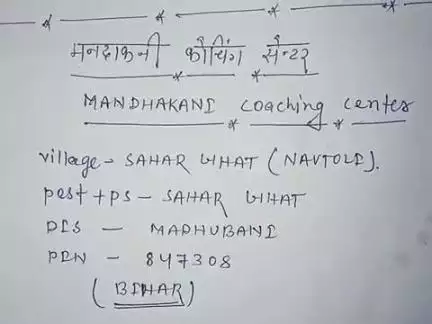 मनदाकनी कोचिंग सेन्टर
MANDHAKANI coaching center
village - SAHAR GHAT (NAVTOLI).
post + PS - SAHAR GHAT
DIS - MADHUBANI
PIN - 847308
(BIHAR)